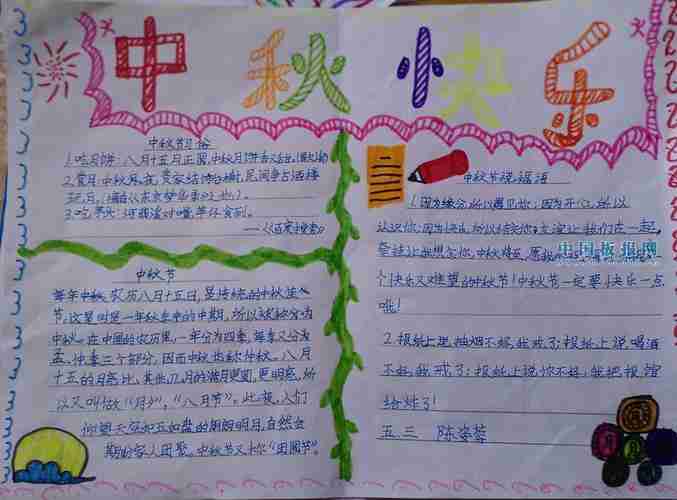 中秋快乐
中秋节习俗
1.吃月饼:八月十五月正圆,中秋月饼香又甜
2.赏月:中秋夜,贵家结饰台榭,民间争占酒楼
玩月。
3.吃
——《百度搜索》
中秋节
每年农历八月十五日,是传统的中秋佳
节。这是时是一年秋季中的中期,所以被称为
中秋。在中国的农历里,一年分为四季,每季又分为
孟、仲、季三个部分,因而中秋也称仲秋。八月
十五的月亮比其他几月的满月更圆,更明亮,所
以又叫做“月夕”,“八月节”。此夜,人们
仰望天空如玉如盘的朗朗明月,自然会
期盼家人团聚。中秋节又称“团圆节”。
中秋节祝福语
1.因为缘分,所以遇见你;因为开心,所以
认识你;因为快乐,所以结交你;友谊让我们在一起,
牵挂让我想念你,中秋将至,愿我
个快乐又难忘的中秋节!中秋节一定要快乐一点
哦!
2.报纸上说抽烟不好,我戒了;报纸上说喝酒
不好,我戒了;报纸上说你不好,我把报馆
给炸了!
五.三 陈
中国板报网